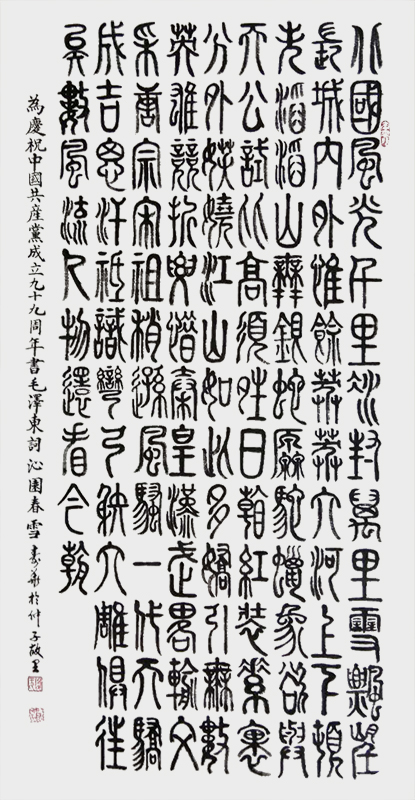 北國風光千里冰封萬里雪飄望
長城内外惟餘莽莽大河上下頓
失滔滔山舞銀蛇原馳蠟象欲與
天公試比高須晴日看紅裝素裹
分外妖嬈江山如此多嬌引無數
英雄競折腰惜秦皇漢武略輸文
采唐宗宋祖稍遜風騷一代天驕
成吉思汗祗識彎弓射大雕俱往
矣數風流人物還看今朝
為慶祝中國共産黨成立九十九周年書毛澤東詞沁園春雪 於仲子故里